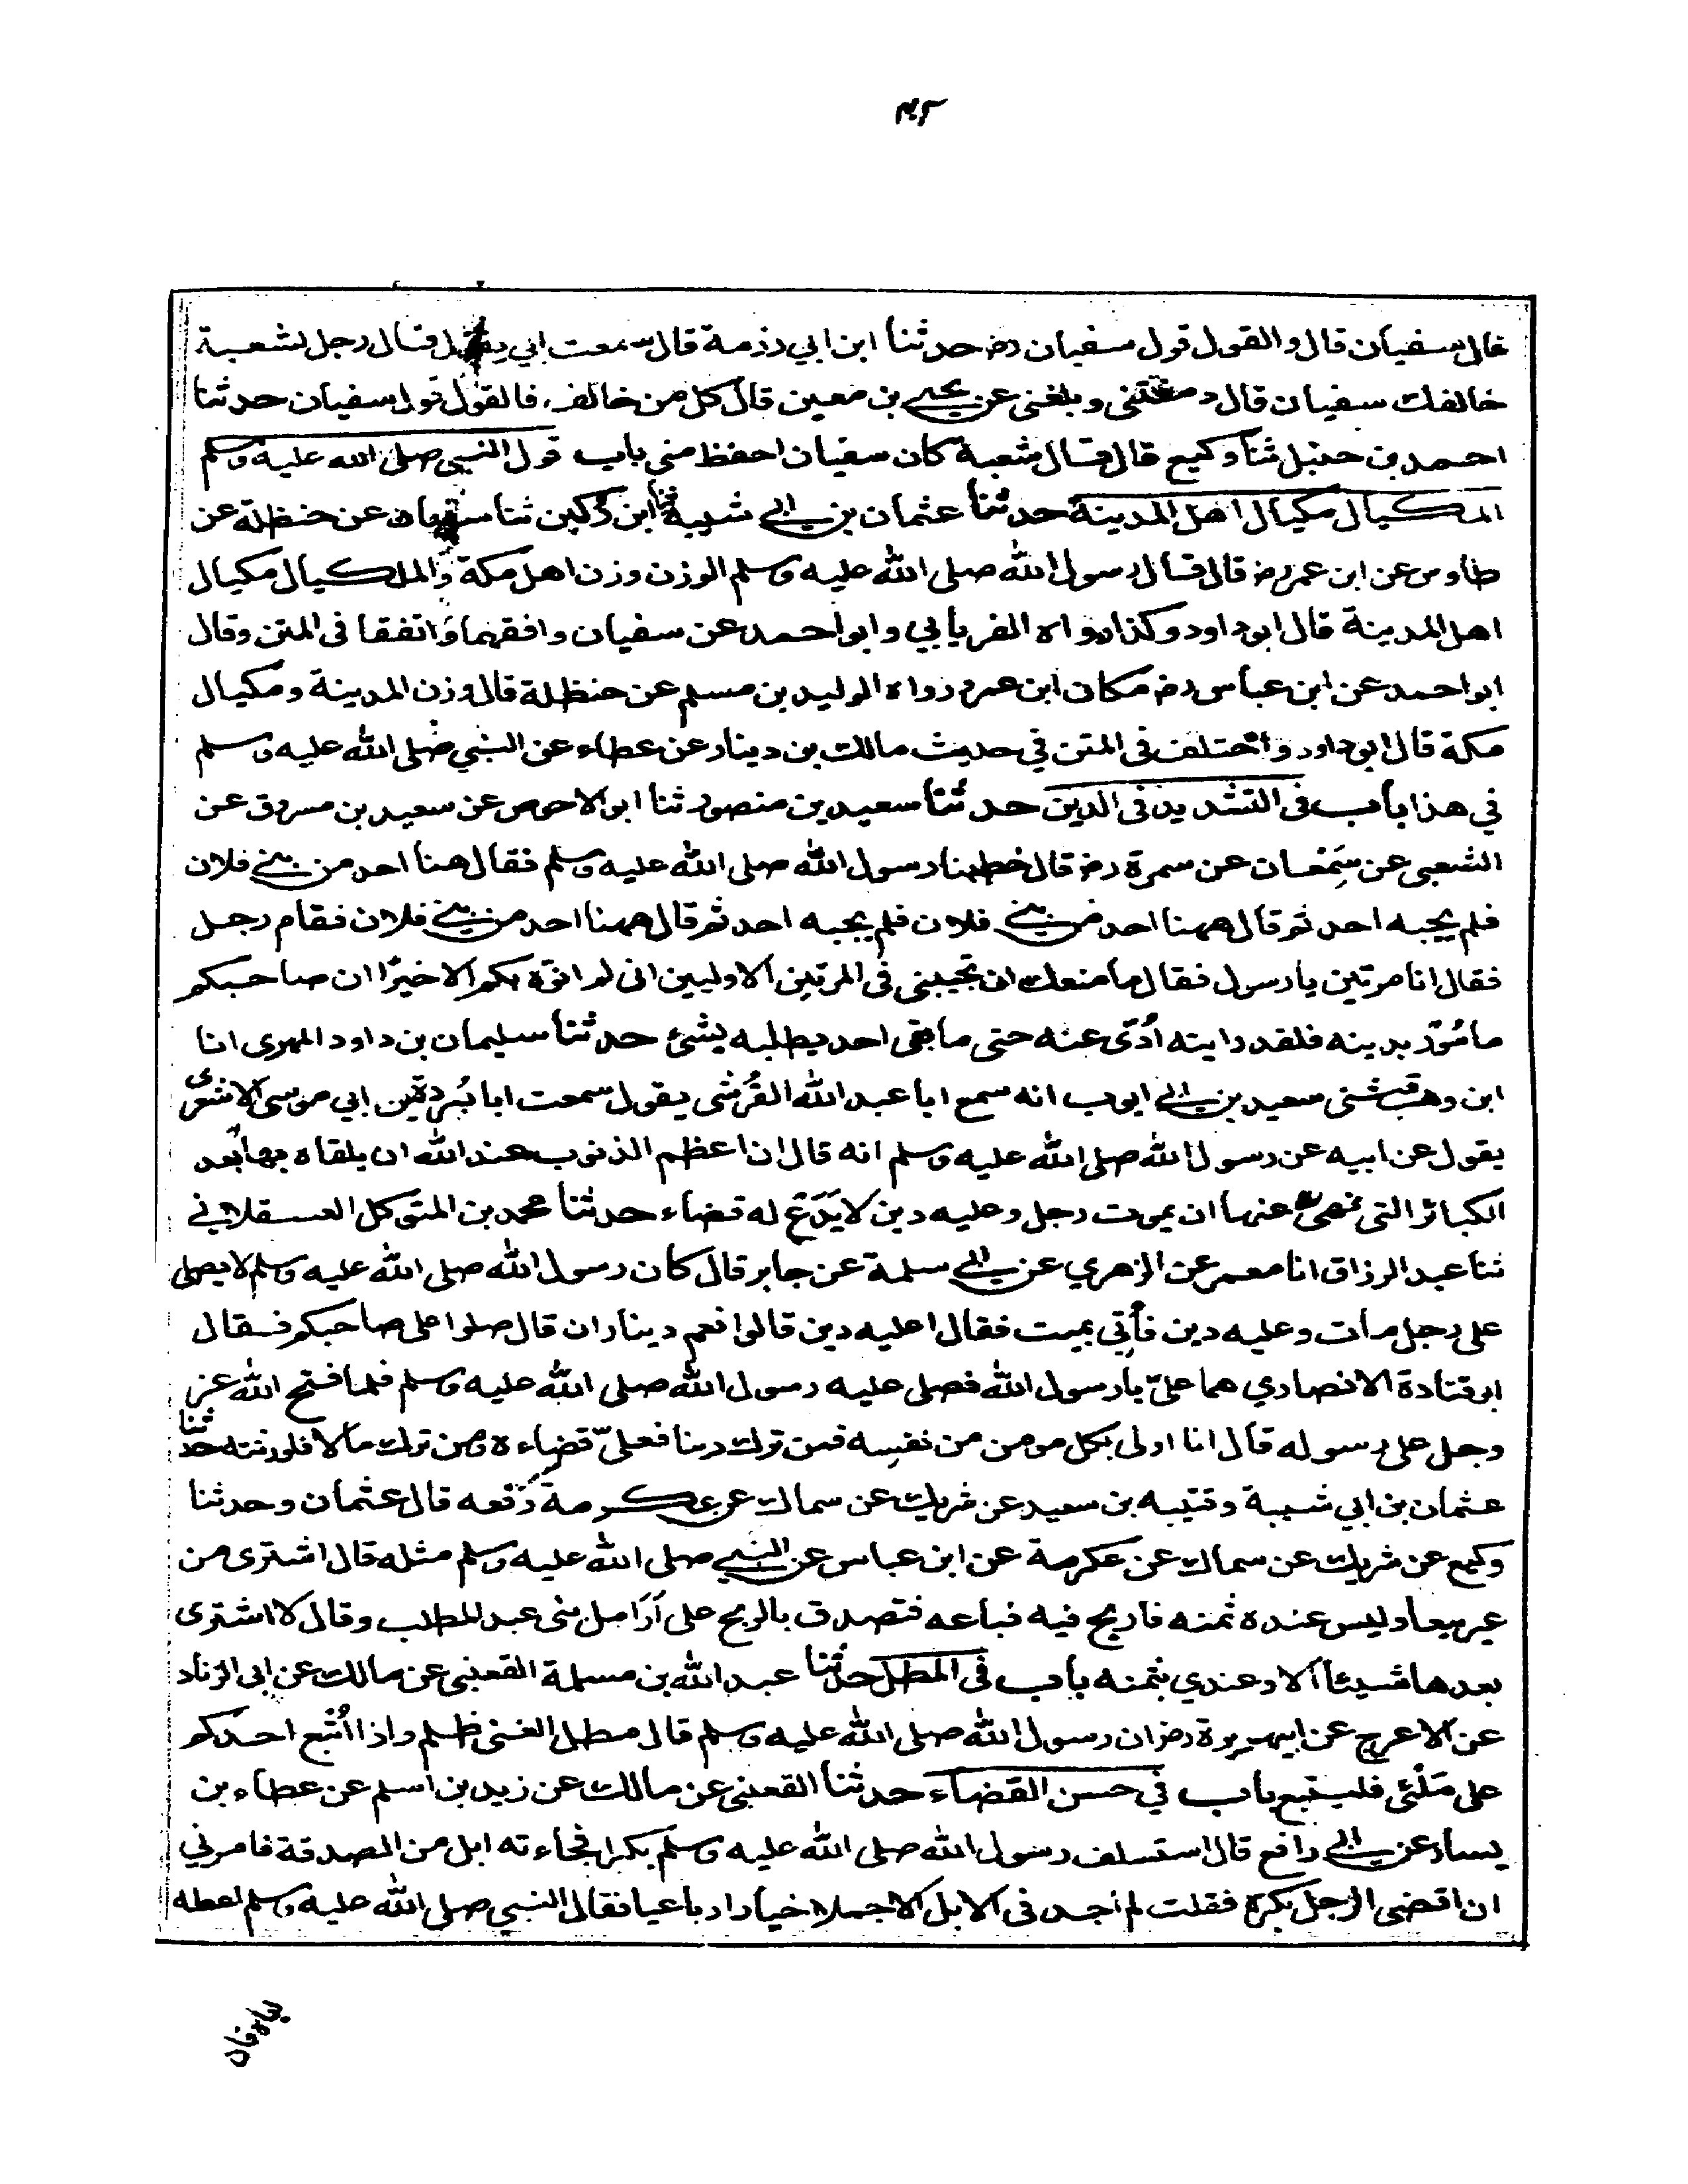 سفيان قال والقول قول سفيان رض حدثنا ابن ابي رزمة قال سمعت ابي يقول قال رجل لشعبة
خالفك سفيان قال دمغتني وبلغني عن يحيى بن معين قال كل من خالف، فالقول قول سفيان حدثنا
احمد بن حنبل ثنا وكيع قال قال شعبة كان سفيان احفظ مني باب قول النبي صلى الله عليه وسلم
المكيال مكيال اهل المدينة حدثنا عثمان بن ابي شيبة ثنا ابن دكين ثنا سفيان عن حنظلة عن
طاوس عن ابن عمر رض قال قال رسول الله صلى الله عليه وسلم الوزن وزن اهل مكة والمكيال مكيال
اهل المدينة قال ابو داود وكذا رواه الفريابي وابو احمد عن سفيان وافقهما واتفقا في المتن وقال
ابو احمد عن ابن عباس رض مكان ابن عمر ورواه الوليد بن مسلم عن حنظلة قال وزن المدينة ومكيال
مكة قال ابو داود واختلف في المتن في حديث مالك بن دينار عن عطاء عن النبي صلى الله عليه وسلم
في هذا باب في التشديد في الدين حدثنا سعيد بن منصور ثنا ابو الاحوص عن سعيد بن مسروق عن
الشعبي عن سمعان عن سمرة رض قال خطبنا رسول الله صلى الله عليه وسلم فقال هنا احد من بني فلان
فلم يجبه احد ثم قال ههنا احد من بني فلان فلم يجبه احد ثم قال ههنا احد من بني فلان فقام رجل
فقال انا مرتين يا رسول فقال ما منعك ان تجيبني في المرتين الاوليين اني لم انوه بكم الا خيرا ان صاحبكم
مأسور بدينه فلقد رايته ادى عنه حتى ما بقى احد يطلبه بشئ حدثنا سليمان بن داود المهرى انا
ابن وهب ثنى سعيد بن ابي ايوب انه سمع ابا عبد الله القرشى يقول سمعت ابا بردة بن ابي موسى الاشعرى
يقول عن ابيه عن رسول الله صلى الله عليه وسلم انه قال ان اعظم الذنوب عند الله ان يلقاه بها بعد
الكبائر التي نهى عنها ان يموت رجل وعليه دين لا يدع له قضاء حدثنا محمد بن المتوكل العسقلاني
ثنا عبد الرزاق انا معمر عن الزهري عن ابي سلمة عن جابر قال كان رسول الله صلى الله عليه وسلم لا يصلى
على رجل مات وعليه دين فأتي بميت فقال اعليه دين قالوا نعم ديناران قال صلوا على صاحبكم فقال
ابو قتادة الانصاري هما علىّ يا رسول الله فصلى عليه رسول الله صلى الله عليه وسلم فلما فتح الله عز
وجل على رسوله قال انا اولى بكل مومن من نفسه فمن ترك دينا فعلىّ قضاءه ومن ترك مالا فلورثته حدثنا
عثمان بن ابي شيبة وقتيبه بن سعيد عن شريك عن سماك عن عكرمة رفعه قال عثمان وحدثنا
وكيع عن شريك عن سماك عن عكرمة عن ابن عباس عن النبي صلى الله عليه وسلم مثله قال اشترى من
عير بيعا وليس عنده ثمنه فاربح فيه فباعه فتصدق بالربح على أرامل بنى عبد المطلب وقال لا اشترى
بعدها شيئا الا وعندي ثمنه باب في المطل حدثنا عبد الله بن مسلمة القعنبي عن مالك عن ابي الزناد
عن الاعرج عن ابي هريرة رض ان رسول الله صلى الله عليه وسلم قال مطل الغني ظلم واذا اتبع احدكم
على ملئ فليتبع باب في حسن القضاء حدثنا القعنبي عن مالك عن زيد بن اسلم عن عطاء بن
يسار عن ابي رافع قال استسلف رسول الله صلى الله عليه وسلم بكرا فجاءته ابل من الصدقة فامرني
ان اقضى الرجل بكره فقلت لم اجد في الابل الا جملا خيارا رباعيا فقال النبي صلى الله عليه وسلم اعطه
اياه فان